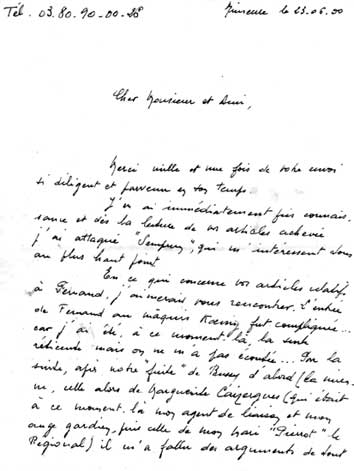 Tél. 03.80.90-00-28
le 23.06.00
Cher Monsieur et Ami,
Merci mille et une fois de votre envoi
si diligent et parvenu en son temps.
J'en ai immédiatement pris connais.
sance et dès la lecture de vos articles achevée
j'ai attaqué "Semprun", qui m'intéressent tous
au plus haut point
En ce qui concerne vos articles relatifs
à Fernand, j'aimerais vous rencontrer. L'entrée
de Fernand au maquis Koenig fut compliquée...
car j'ai été, à ce moment là, la seule
réticente mais on ne m'a pas écoutée... Par la
suite, après notre "fuite" de Bussy d'abord (la mien-
ne, celle alors de Marguerite (qui était
à ce moment-là mon agent de liaison et mon
ange gardien, puis celle de mon mari "Pierrot" le
Régional) il m'a fallu des arguments de tout